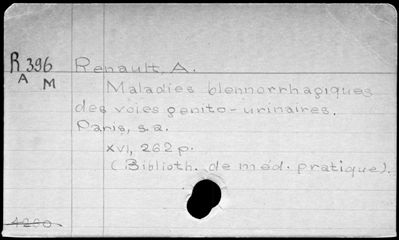 R 396
A M
Renault, A.
Maladies blennorrhagiques
des voies genito-urinaires.
Paris, s.a.
XVI, 262 p.
(Biblioth. de méd. pratique).